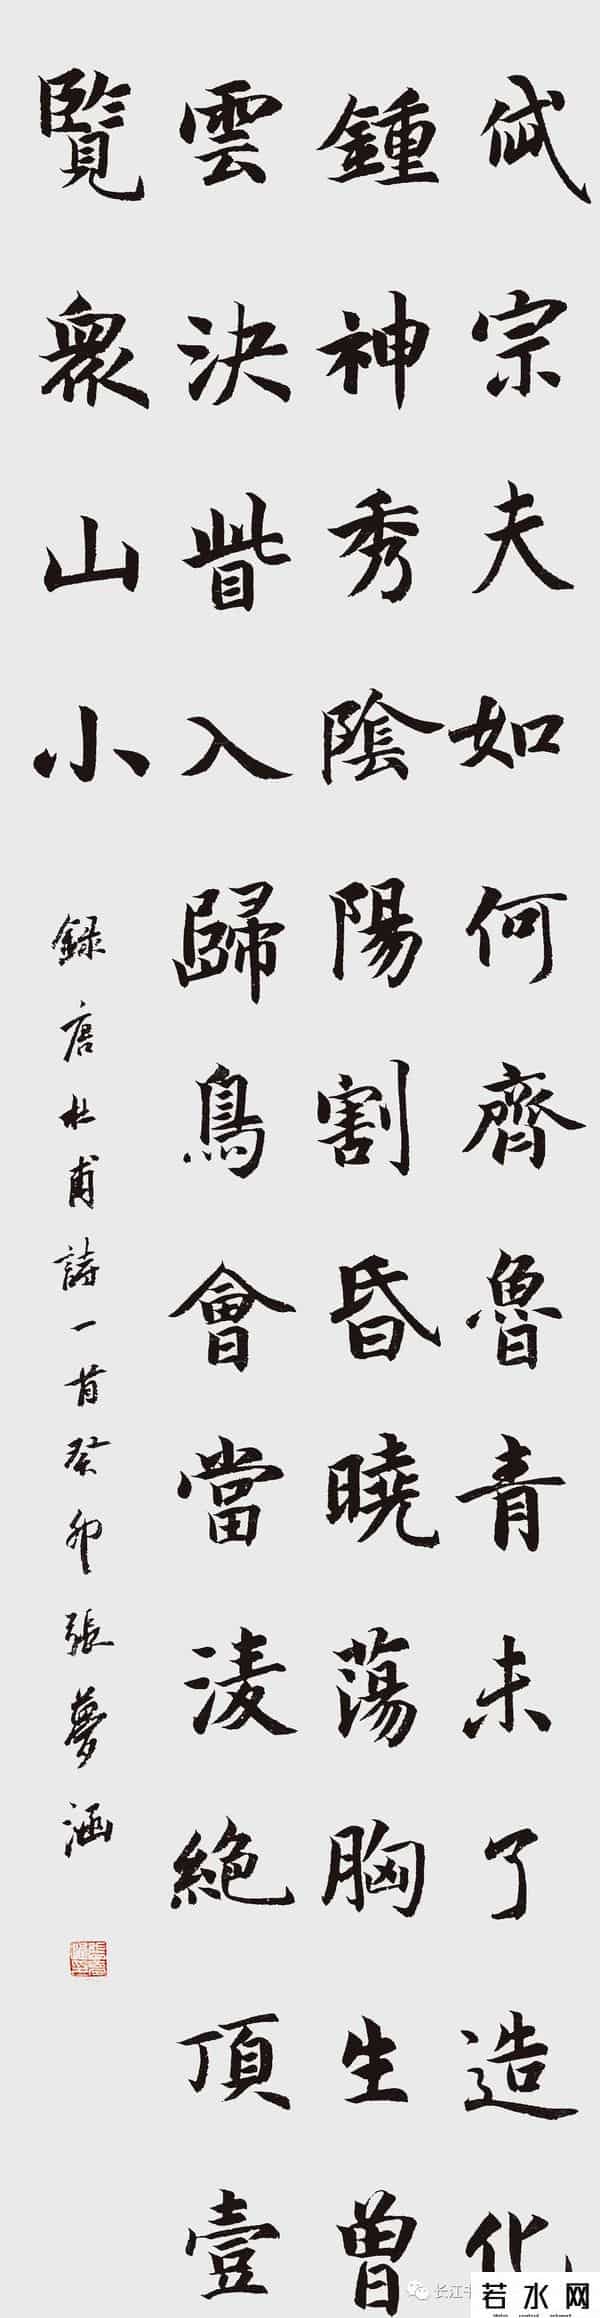 岱宗夫如何齊魯青未了造化
鍾神秀陰陽割昏曉蕩胸生曾
雲決眥入歸鳥會當淩絶頂壹
覽眾山小
録唐杜甫詩一首癸卯張夢涵
长江
若水网